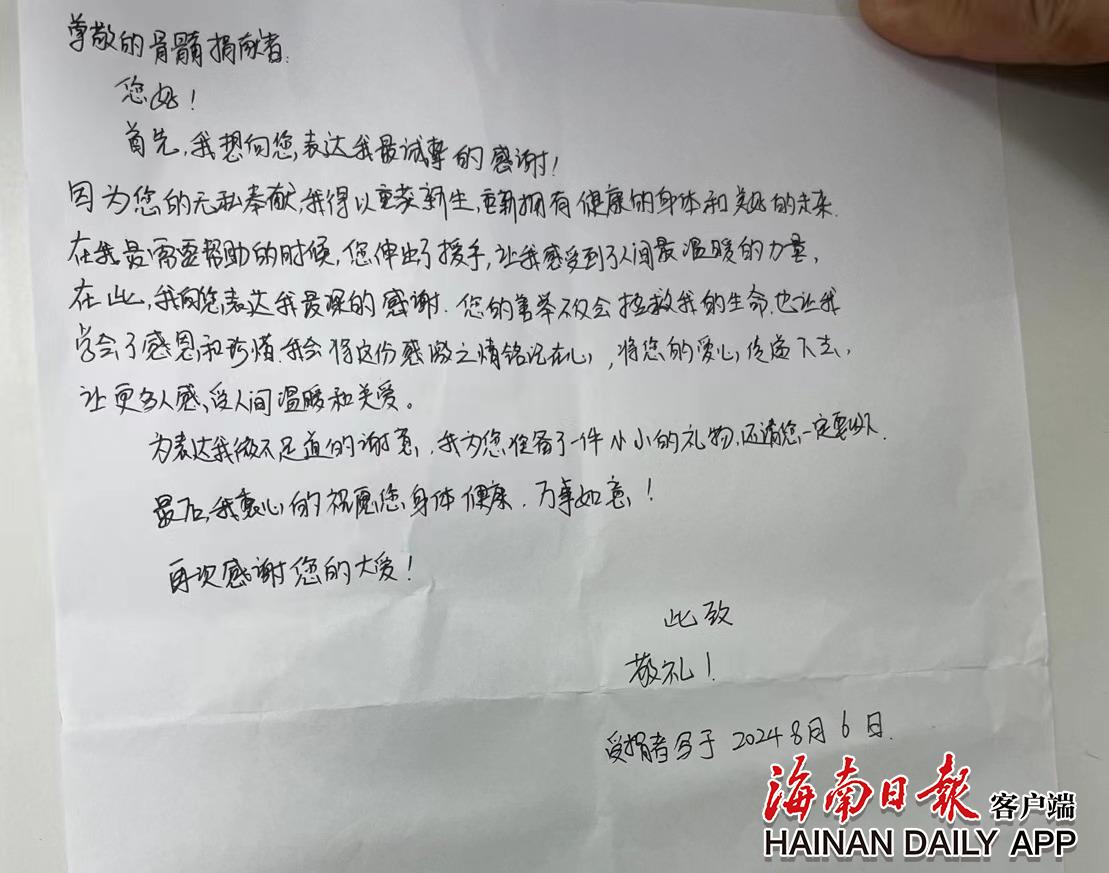 尊敬的骨髓捐献者:
您好!
首先,我想向您表达我最诚挚的感谢!
因为您的无私奉献,我得以重获新生,重新拥有健康的身体和美好的未来.
在我最需要帮助的时候,您伸出了援手,让我感受到了人间最温暖的力量,
在此,我向您表达我最深的感谢.您的善举不仅会拯救我的生命,也让我
学会了感恩和珍惜,我会将这份感激之情铭记在心,将您的爱心传递下去,
让更多人感受人间温暖和关爱。
为表达我微不足道的谢意,我为您准备了一件小小的礼物,还请您一定要收下.
最后,我衷心的祝愿您身体健康.万事如意!
再次感谢您的大爱!
此致
敬礼!
受捐者写于2024 8月6日.
海南日报 客户端
HAINAN DAILY APP